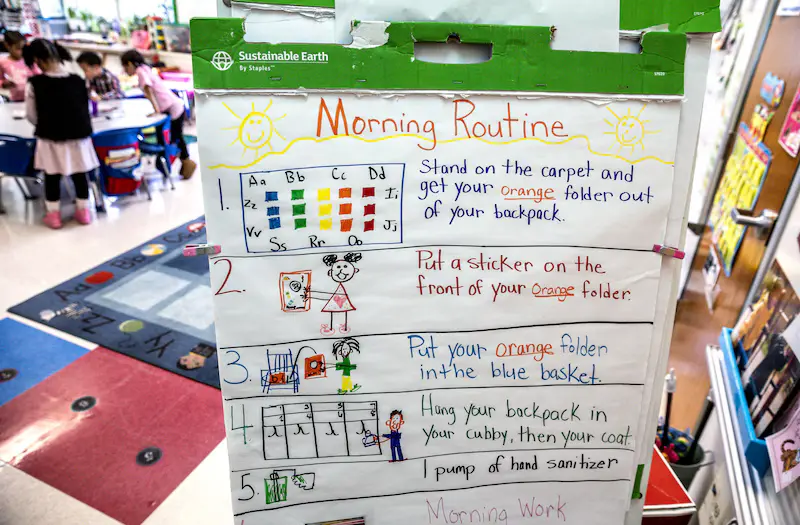 Sustainable Earth
By Staples™
Morning Routine
1.
Aa Bb Cc Dd
Zz Ii
Vv Jj
Ss Rr Oo
Stand on the carpet and
get your orange folder out
of your backpack.
2.
Put a sticker on the
front of your orange folder.
3.
Put your orange folder
in the blue basket.
4
Hang your backpack in
your cubby, then your coat
5.
1 pump of hand sanitizer
Morning Work
Aa Bb Cc
Zz
Yy